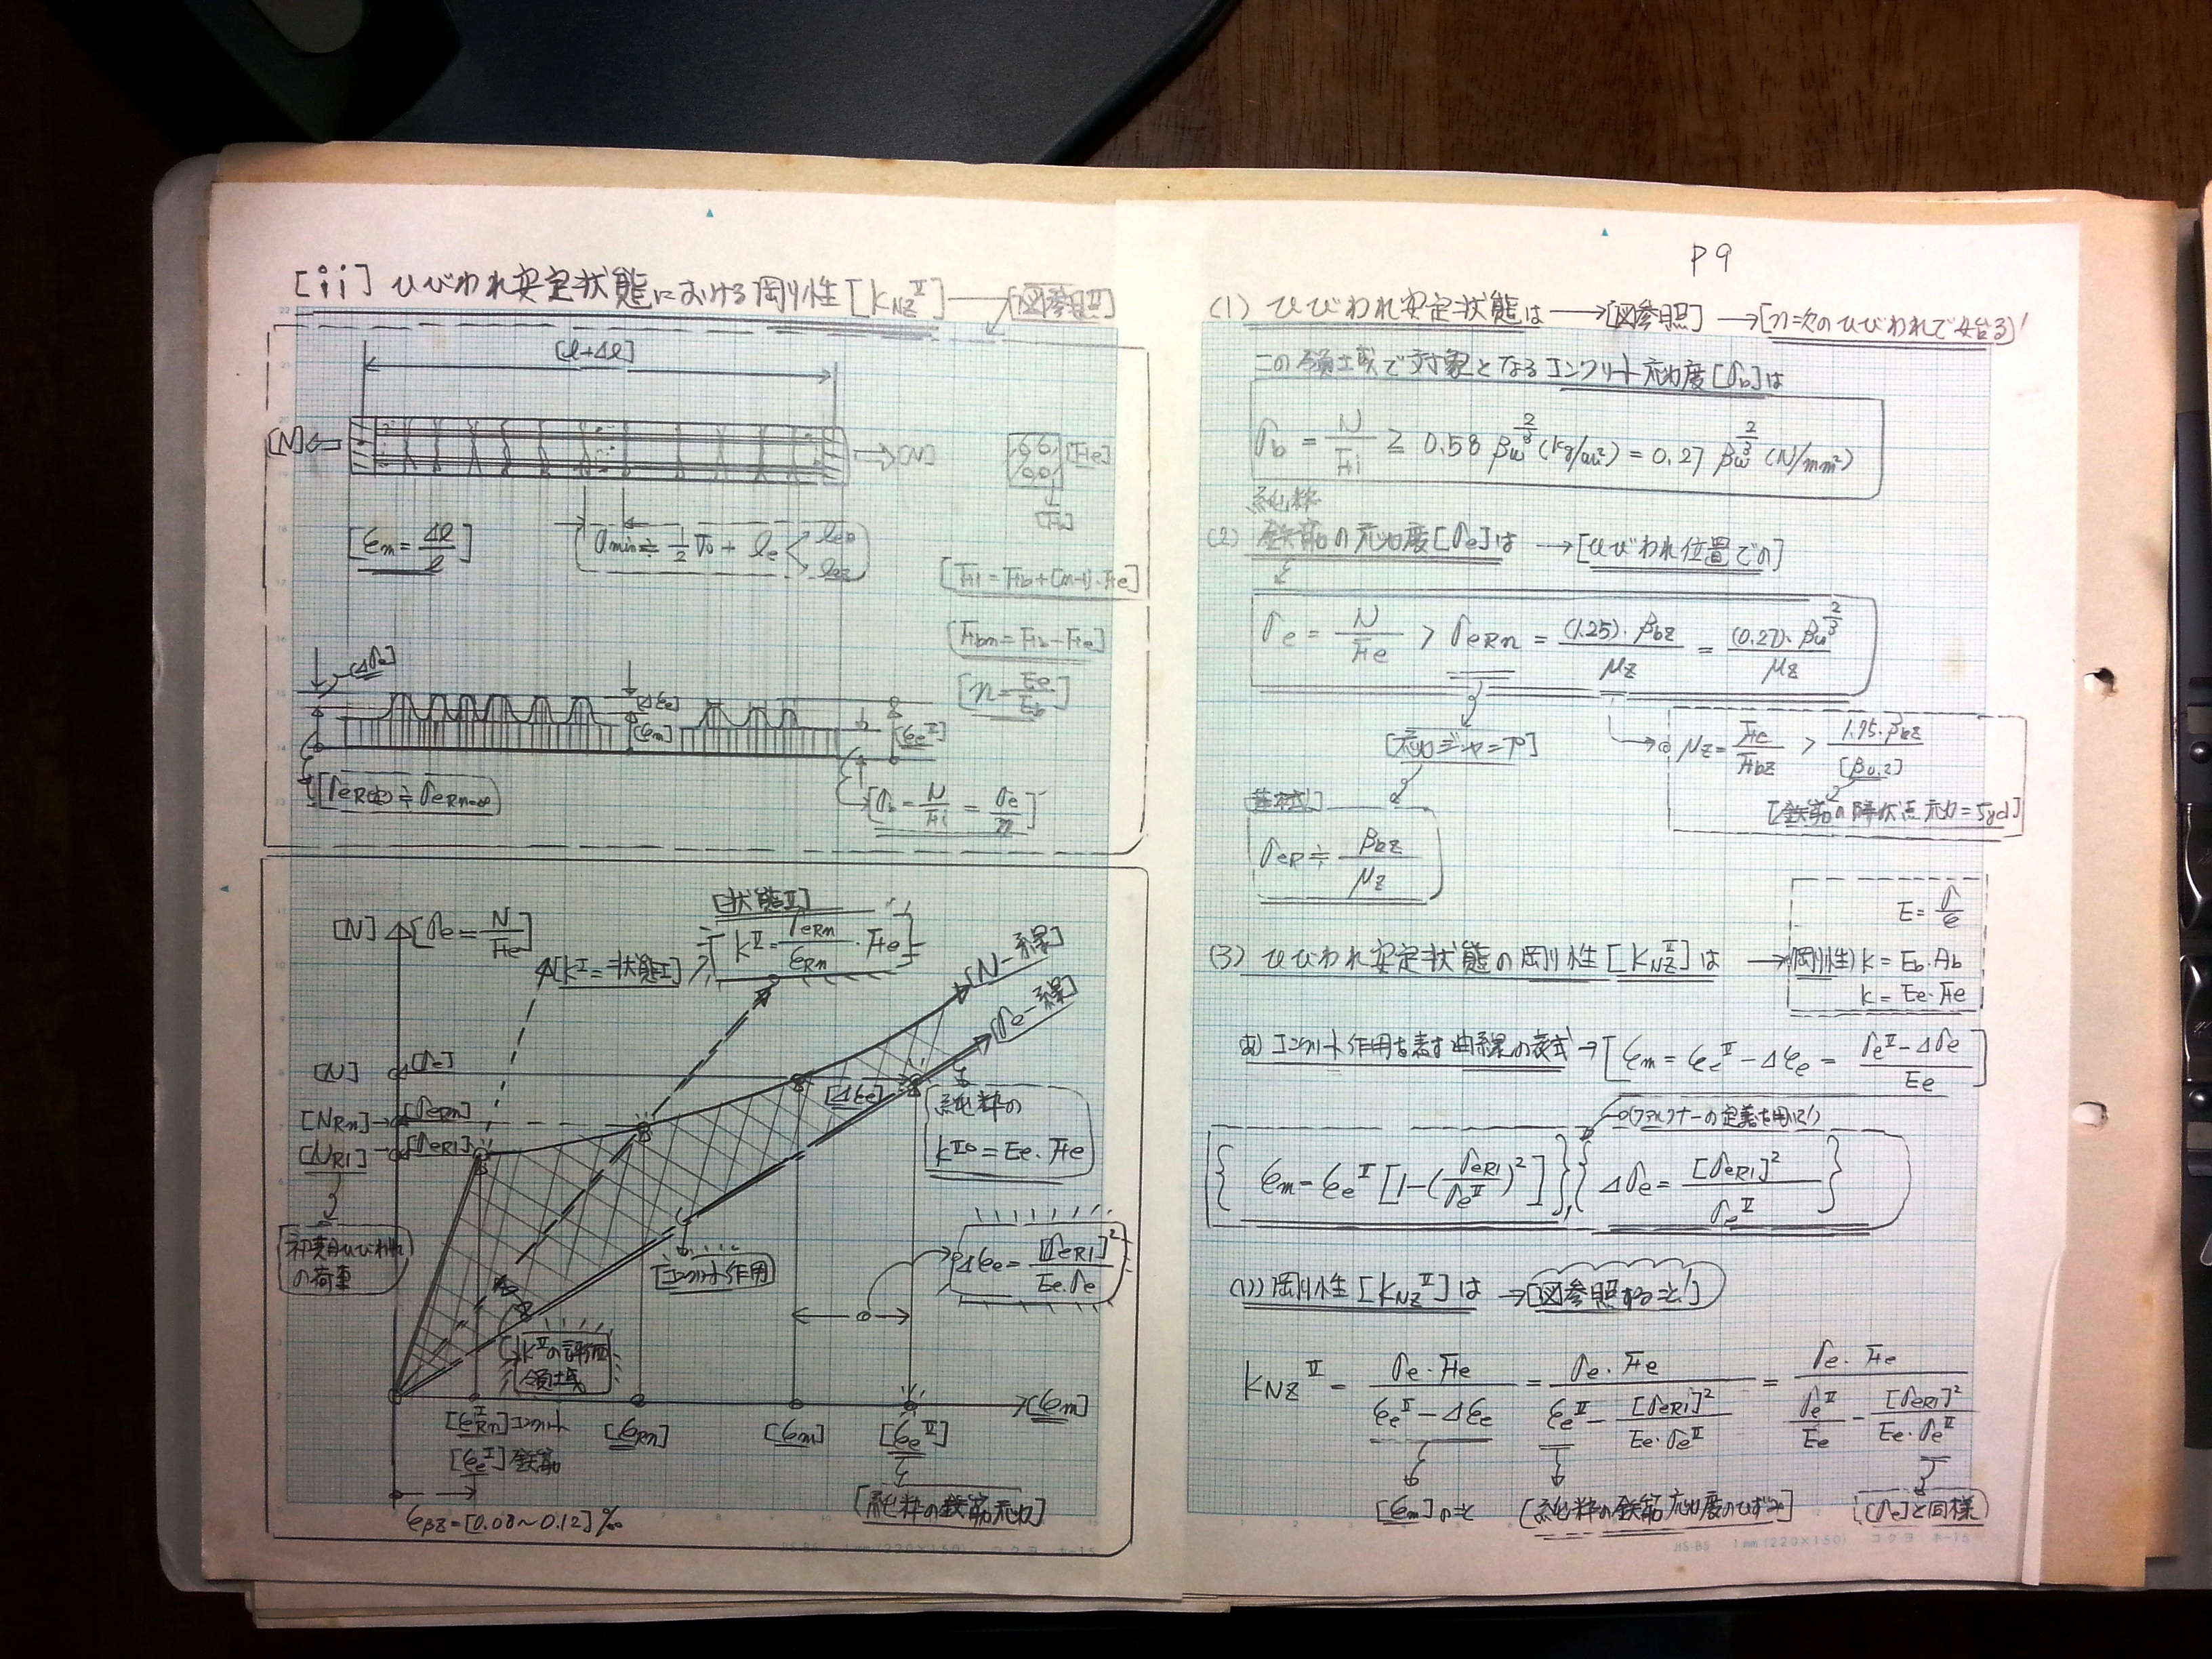 [ii] ひびわれ安定状態における剛性 [K_NZ^II] → [図参照]
[l+Δl]
[N]
[N]
[Fe]
[Fb]
[εm = Δl/l]
amin ≒ 1/2 v0 + le < leo
[Fi = Fb+(n-1)·Fe]
[Fbn = Fb-Fe]
[n = Ee/Eb]
[Δσe]
[Δεe]
[εm]
[εe^II]
[σb = N/Fi = σe/n]
[N] [σe = N/Fe]
[状態II]
[K^I = 状態I]
[K^II = σeRn/εRn · Fe]
[N-線]
[σe-線]
[N] [σe]
[NRn] [σeRn]
[NR1] [σeR1]
[Δεe]
純粋の
K^IIo = Ee·Fe
初期ひびわれ
の荷重
[コンクリート作用]
Δεe = [σeR1]^2/(Ee·σe)
K^IIの評価
領域
[εm]
[εRn^I] コンクリート
[εRn]
[εm]
[εe^II]
[εe^I] 鉄筋
[純粋の鉄筋応力]
εβZ = [0.08~0.12]‰
JIS B5 1mm(220×150) コクヨ ホ-15
P9
(1) ひびわれ安定状態は → [図参照] → [n=次のひびわれで始る]!
この領域で対象となるコンクリート応力度[σb]は
σb = N/Fi ≧ 0.58 βw^(2/3) (kg/cm²) = 0.27 βw^(2/3) (N/mm²)
純粋
(2) 鉄筋の応力度[σe]は → [ひびわれ位置での]
σe = N/Fe > σeRn = (1.25)·βbz/μz = (0.27)·βw^(2/3)/μz
[応力ジャンプ]
μz = Fe/Fbz > 1.75·βbz/[β0.2]
[鉄筋の降伏点応力=σyd]
[基本式]
σeR ≒ βbz/μz
E = σ/ε
(3) ひびわれ安定状態の剛性[K_NZ^II]は → 剛性) K = Eb·Ab
K = Ee·Fe
あ) コンクリート作用を表す曲線の表式 → [εm = εe^II - Δεe = (σe^II - Δσe)/Ee]
の定義を用い!
{εm = εe^II [1-(σeR1/σe^II)^2]}, {Δσe = [σeR1]^2/σe^II}
い) 剛性[K_NZ^II]は → [図参照すること!]
K_NZ^II = σe·Fe/(εe^II - Δεe) = σe·Fe/(εe^II - [σeR1]^2/(Ee·σe^II)) = σe·Fe/(σe^II/Ee - [σeR1]^2/(Ee·σe^II))
[εm]のこと [純粋の鉄筋応力度のひずみ] [σe]と同様
JIS B5 1mm(220×150) コクヨ ホ-15